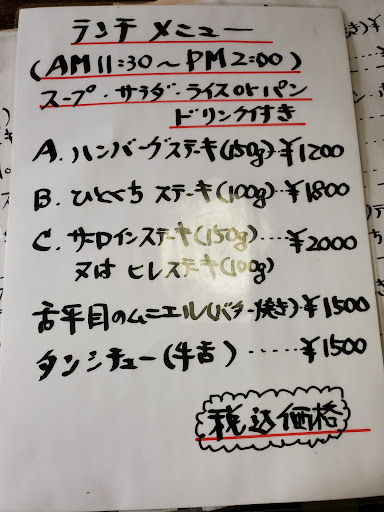 ランチ メニュー
(AM 11:30〜PM 2:00)
スープ・サラダ・ライスorパン
ドリンク付き
A. ハンバーグステーキ(150g)・¥1200
B. ひとくち ステーキ(100g)・¥1800
C. サーロインステーキ(150g)....¥2000
又は ヒレステーキ(100g)
舌平目のムニエル(バター焼き)・¥1500
タンシチュー(牛舌).....¥1500
税込価格